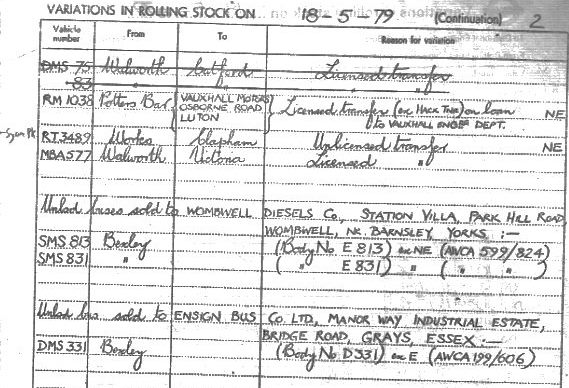 VARIATIONS IN ROLLING STOCK ON 18-5-79 (Continuation) 2
Vehicle number From To Reason for variation
DMS 75 Walworth Catford Licensed transfer
83 " " "
RM 1038 Potters Bar VAUXHALL MOTORS OSBORNE ROAD LUTON Licensed transfer (ex on loan NE
to VAUXHALL ENGG DEPT.
RT3489 Works Clapham Unlicensed transfer NE
MBA577 Walworth Victoria Licensed "
Unlicd buses sold to WOMBWELL DIESELS Co., STATION VILLA, PARK HILL ROAD,
WOMBWELL, Nr. BARNSLEY, YORKS :-
SMS 813 Bexley (Body No E 813) ex NE (AWCA 599/824)
SMS 831 " ( " E 831) ( " " )
Unlicd bus sold to ENSIGN BUS Co LTD, MANOR WAY INDUSTRIAL ESTATE,
BRIDGE ROAD, GRAYS, ESSEX :-
DMS 331 Bexley (Body No D331) ex E (AWCA 199/606)